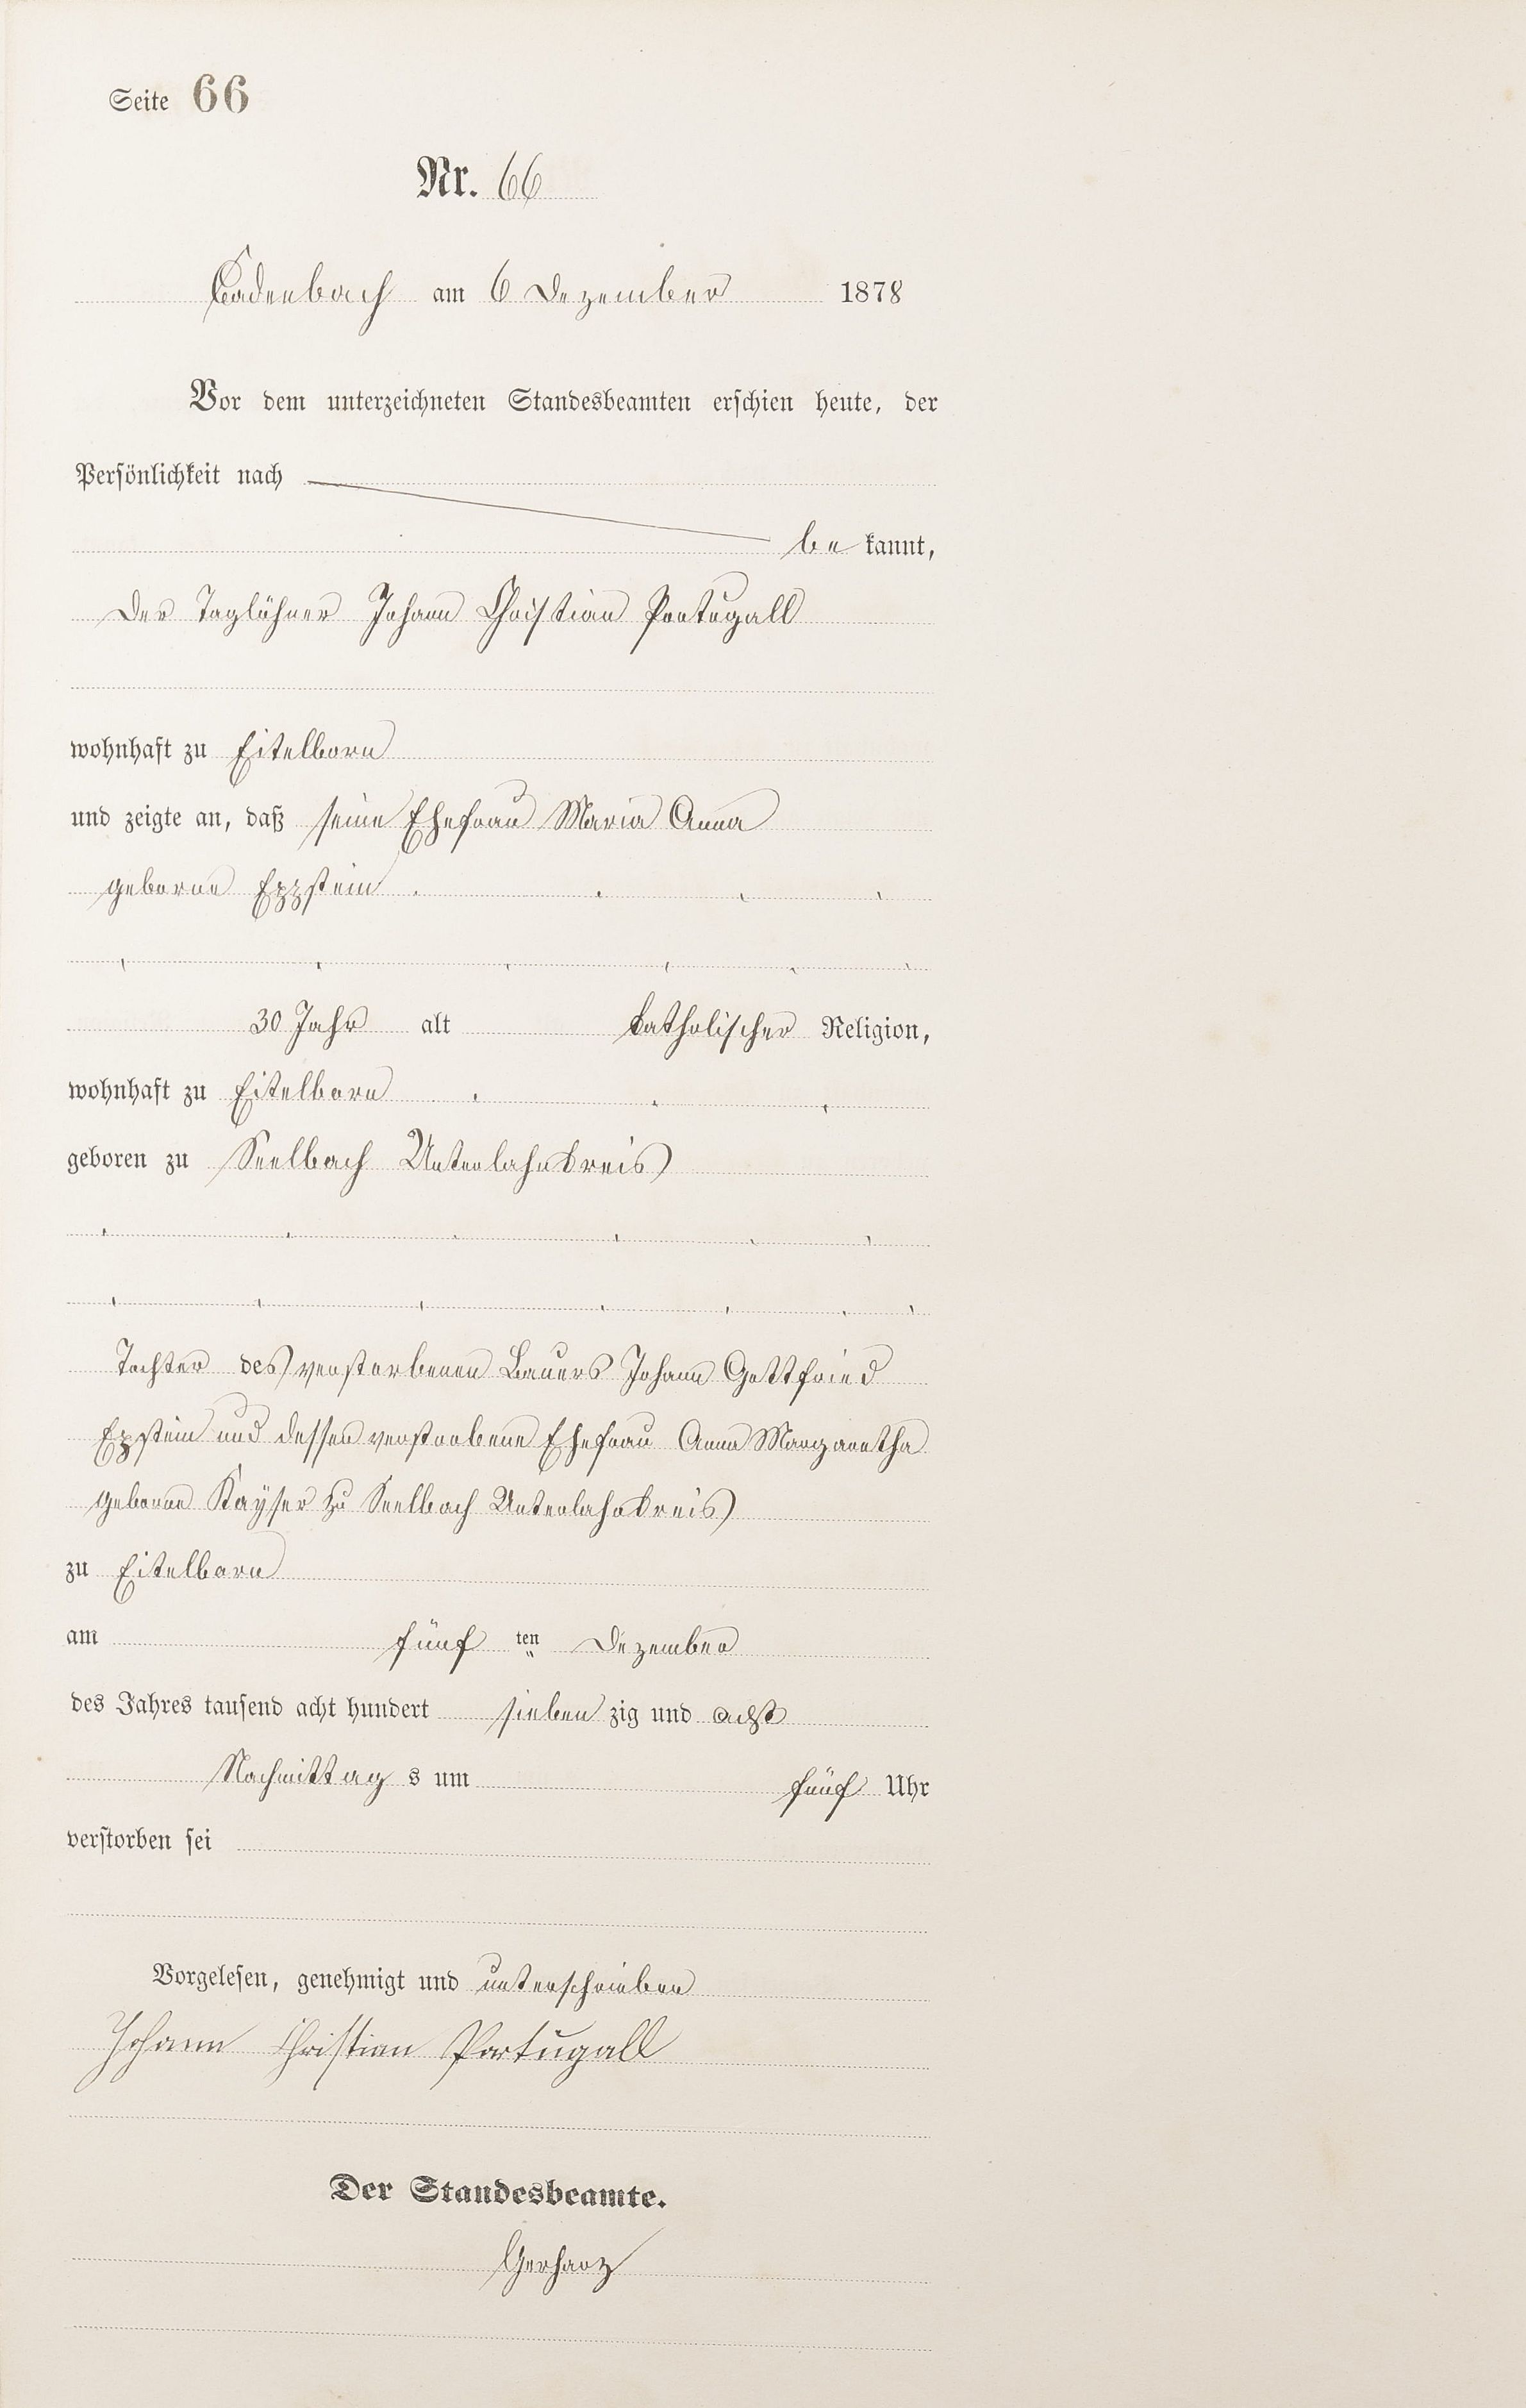 Seite 66
Nr. 66
Cadenbach am 6 Dezember 1878
Vor dem unterzeichneten Standesbeamten erschien heute, der
Persönlichkeit nach
be kannt,
Der Taglöhner Johann Christian Portugall
wohnhaft zu Eitelborn
und zeigte an, daß seine Ehefrau Maria Anna
geborne Eppstein
30 Jahr alt katholischer Religion,
wohnhaft zu Eitelborn
geboren zu Seelbach Unterlahnkreis
Tochter des verstorbenen Bauers Johann Gottfried
Epstein und dessen verstorbene Ehefrau Anna Margaretha
geborne Kayser zu Seelbach Unterlahnkreis
zu Eitelborn
am fünf ten Dezember
des Jahres tausend acht hundert sieben zig und acht
Nachmittag s um fünf Uhr
verstorben sei
Vorgelesen, genehmigt und unterschrieben
Johann Christian Portugall
Der Standesbeamte.
Gerharz